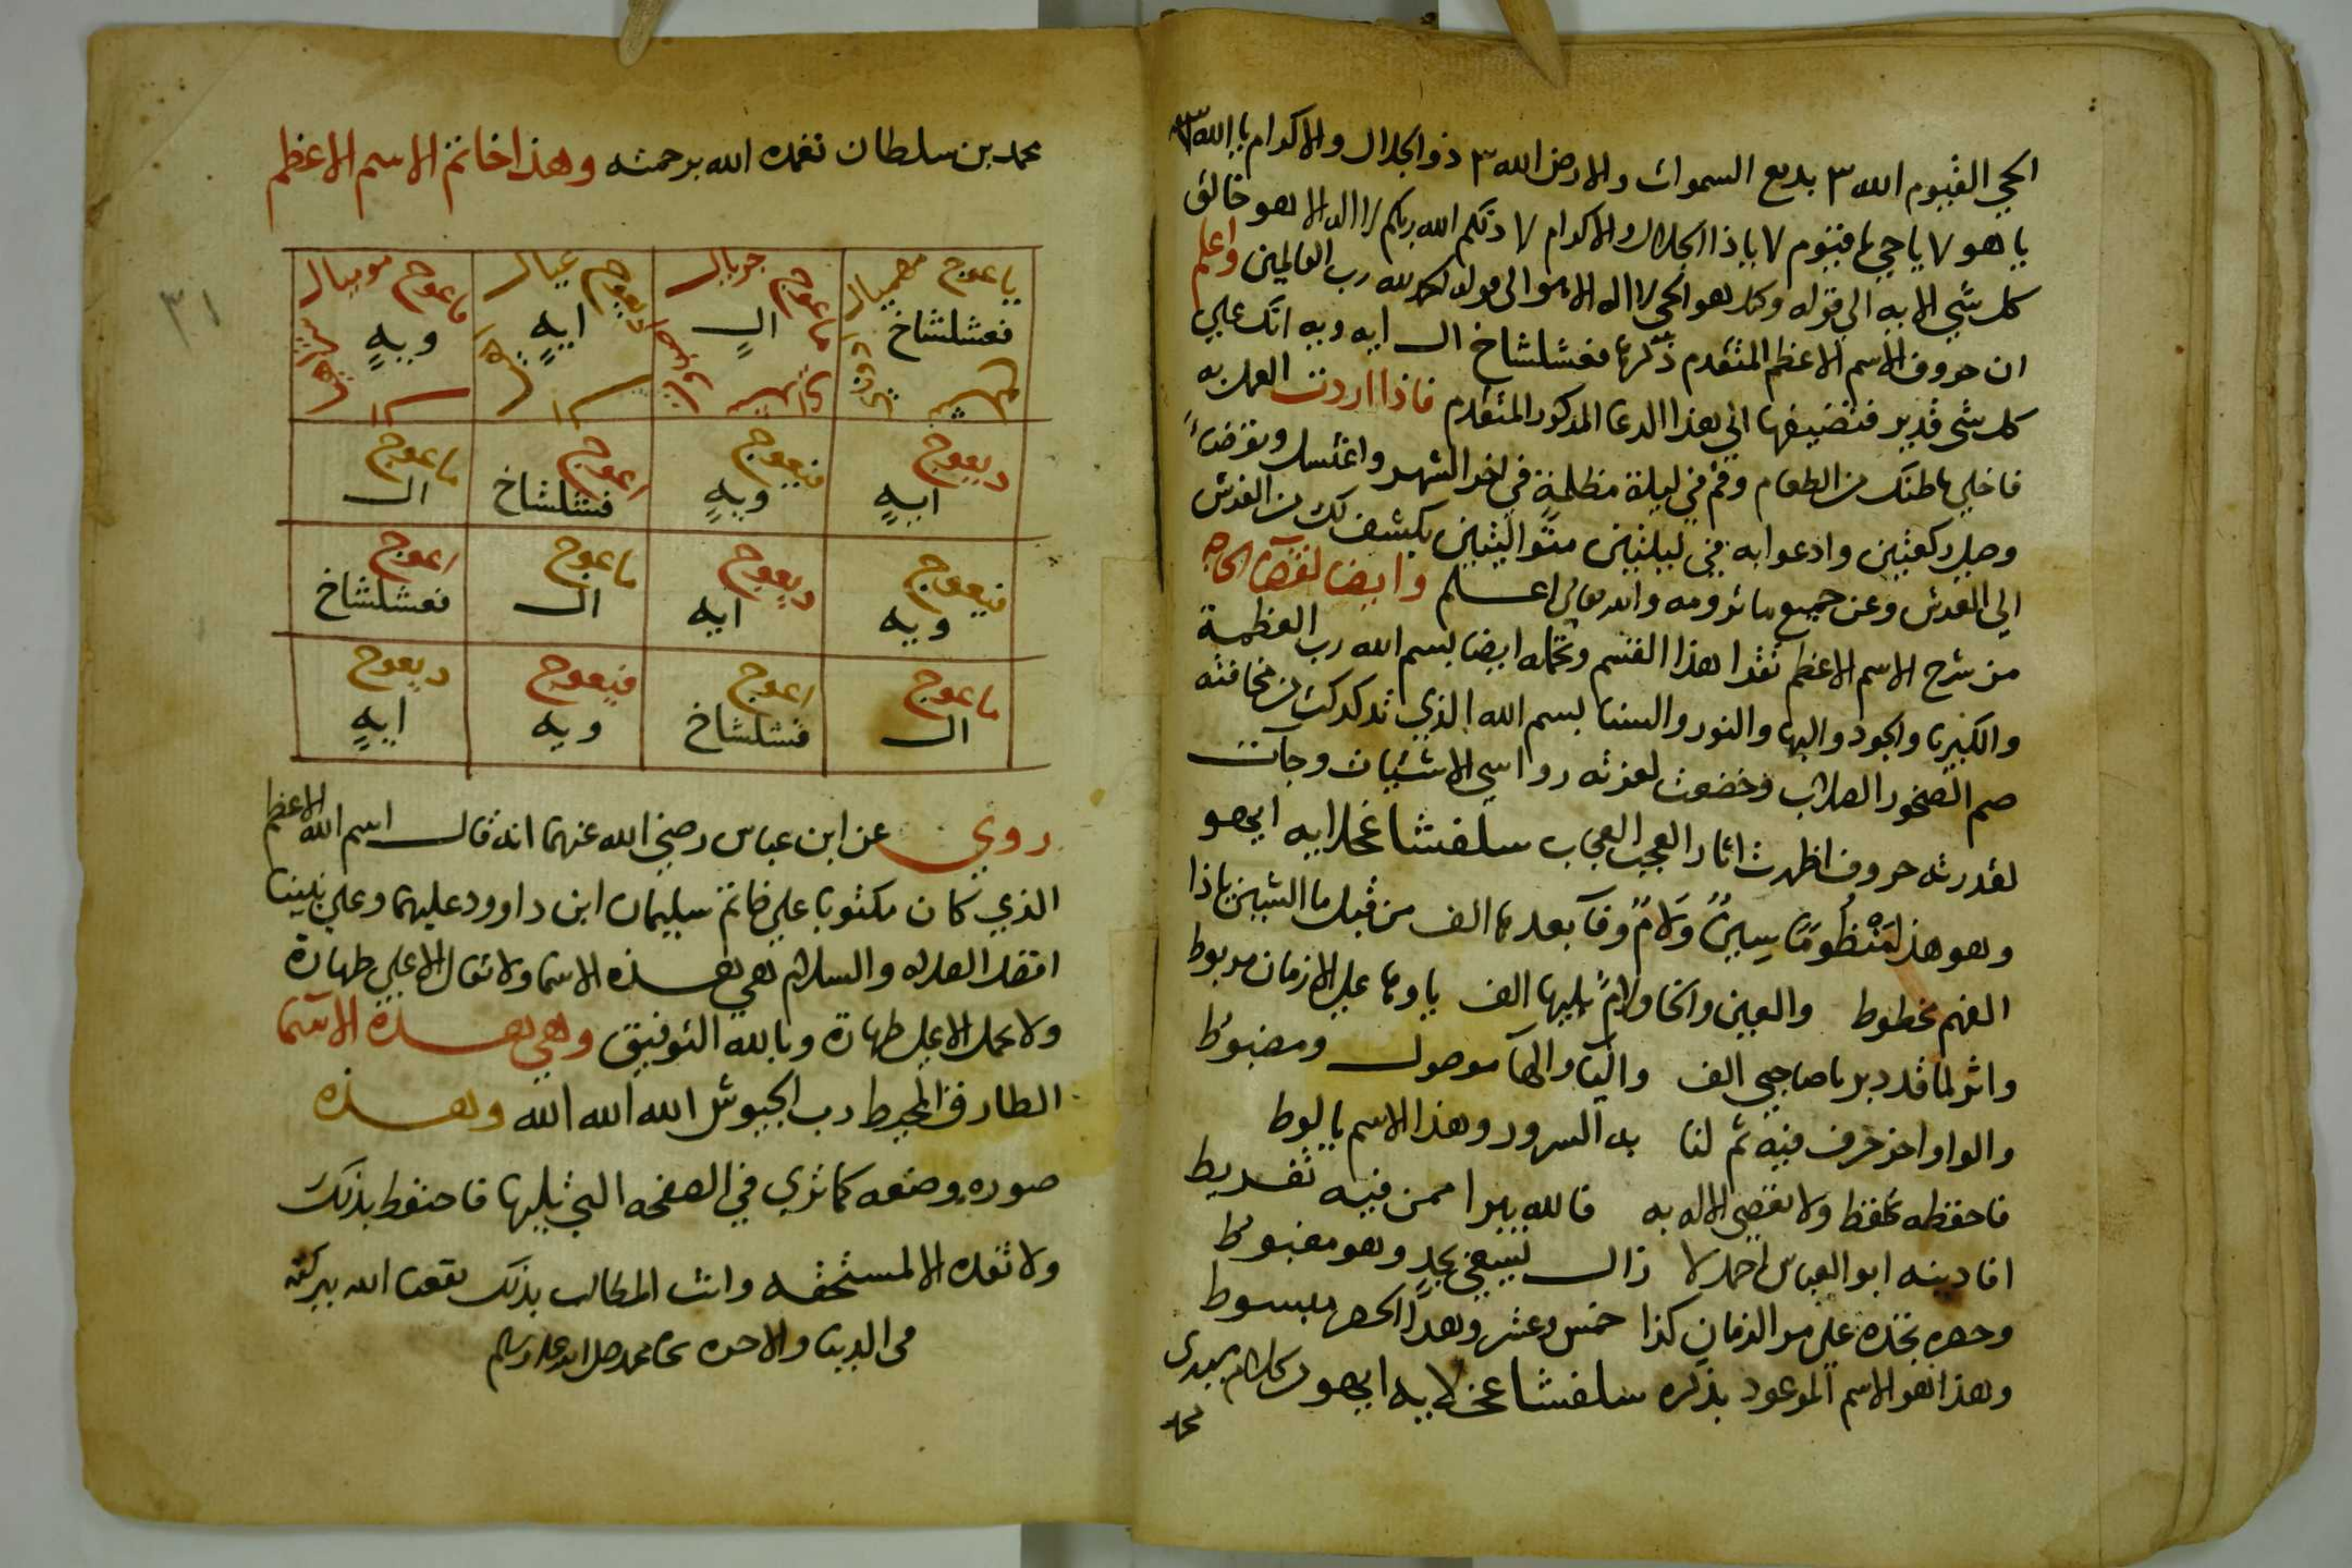 الحي القيوم الله ٣ بديع السموات والارض الله ٣ ذو الجلال والاكرام يا الله ٣
يا هو ٧ يا حي يا قيوم ٧ يا ذا الجلال والاكرام ٧ ذلكم الله ربكم لا اله الا هو خالق
كل شي الايه الي قوله وكذا هو الحي لا اله الا هو الى قوله الحمد لله رب العالمين واعلم
ان حروف الاسم الاعظم المتقدم ذكرها فعشلشاخ ال ايه ويه انك علي
كل شي قدير فتضيفها الي هذا الدعا المذكور المتقدم فاذا اردت العمل به
فاخلي باطنك من الطعام وقم في ليلة مظلمة في اخر الشهر واغتسل وتوضا
وصل ركعتين وادعوا به في ليلتين متواليتين يكشف لك من العرش
الي الفرش وعن جميع ما ترومه والله تعالي اعلم وايضا لقضا الحاجه
من شرح الاسم الاعظم تقرا هذا القسم وتحمله ايضا بسم الله رب العظمة
والكبريا والجود والبها والنور والسنا بسم الله الذي تدكدكت من مخافته
صم الصخور الصلاب وخضعت لعزته رواسي الاشنيات وجات
لقدرته حروف اظهرت اثار العجب العجاب سلفشاغلايه ايهو
وهو هذا منظوما سين ولام وفا بعدها الف من قبل ما الشين يا ذا
الفهم مخطوط والعين والخا ولام يليها الف يا وها علي الازمان مربوط
واثر لما قد دبر يا صاحبي الف واليا والها موصول ومضبوط
والواو اخر حرف فيه ثم لنا به السرور وهذا الاسم يا لوط
فاحفظه تحفظ ولا تقصي الاله به فالله يبرا ممن فيه تفريط
افادينه ابو العباس احمد لا زال يسقي بجد وهو مغبوط
وحصره تجده علي مر الزمان كذا خمس وعشر وهذا الحصر مبسوط
وهذا هو الاسم الموعود بذكره سلفشاعخلايه ايهو كلام سيدى
محمد
محمد بن سلطان تغمده الله برحمته وهذا خاتم الاسم الاعظم
ياعوج مهميال ماعوج جريال ديعوج عيال ماعوج موبيال
فعشلشاخ ال ايه ويه
ديعوج فيعوج اعوج ماعوج
ايه ويه فشلشاخ ال
فيعوج ديعوج ماعوج اعوج
ويه ايه ال فعشلشاخ
ماعوج اعوج فيعوج ديعوج
ال فشلشاخ ويه ايه
روي عن ابن عباس رضي الله عنهما انه قال اسم الله الاعظم
الذي كان مكتوبا علي خاتم سليمان ابن داوود عليهما وعلي نبينا
افضل الصلاه والسلام هي هذه الاسما ولا تقال الا علي طهارة
ولا تحمل الا علي طهارة وبالله التوفيق وهي هذة الاسما
الطارق المحيط رب الجيوش الله الله الله وهذه
صوره وضعه كما تري في الصفحه التي تليها فاحتفظ بذلك
ولا تفده الا لمستحقه وانت المطالب بذلك نفعنا الله ببركته
في الدنيا والاخره بحا محمد صلى الله عليه وسلم
٣١